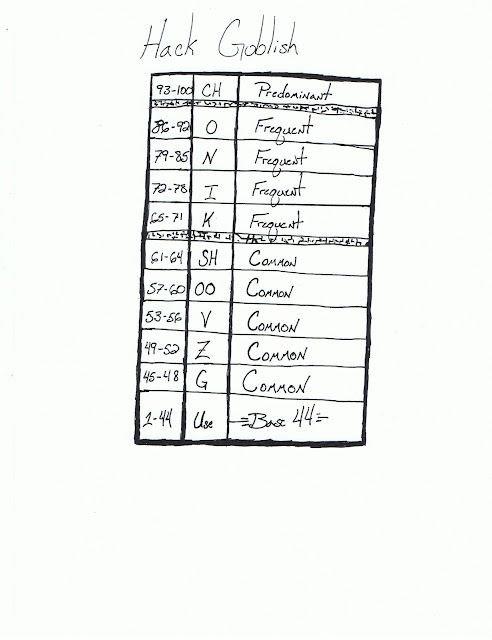 Hack Goblish
93-100 CH Predominant
86-92 O Frequent
79-85 N Frequent
72-78 I Frequent
65-71 K Frequent
61-64 SH Common
57-60 OO Common
53-56 V Common
49-52 Z Common
45-48 G Common
1-44 Use =Base 44=